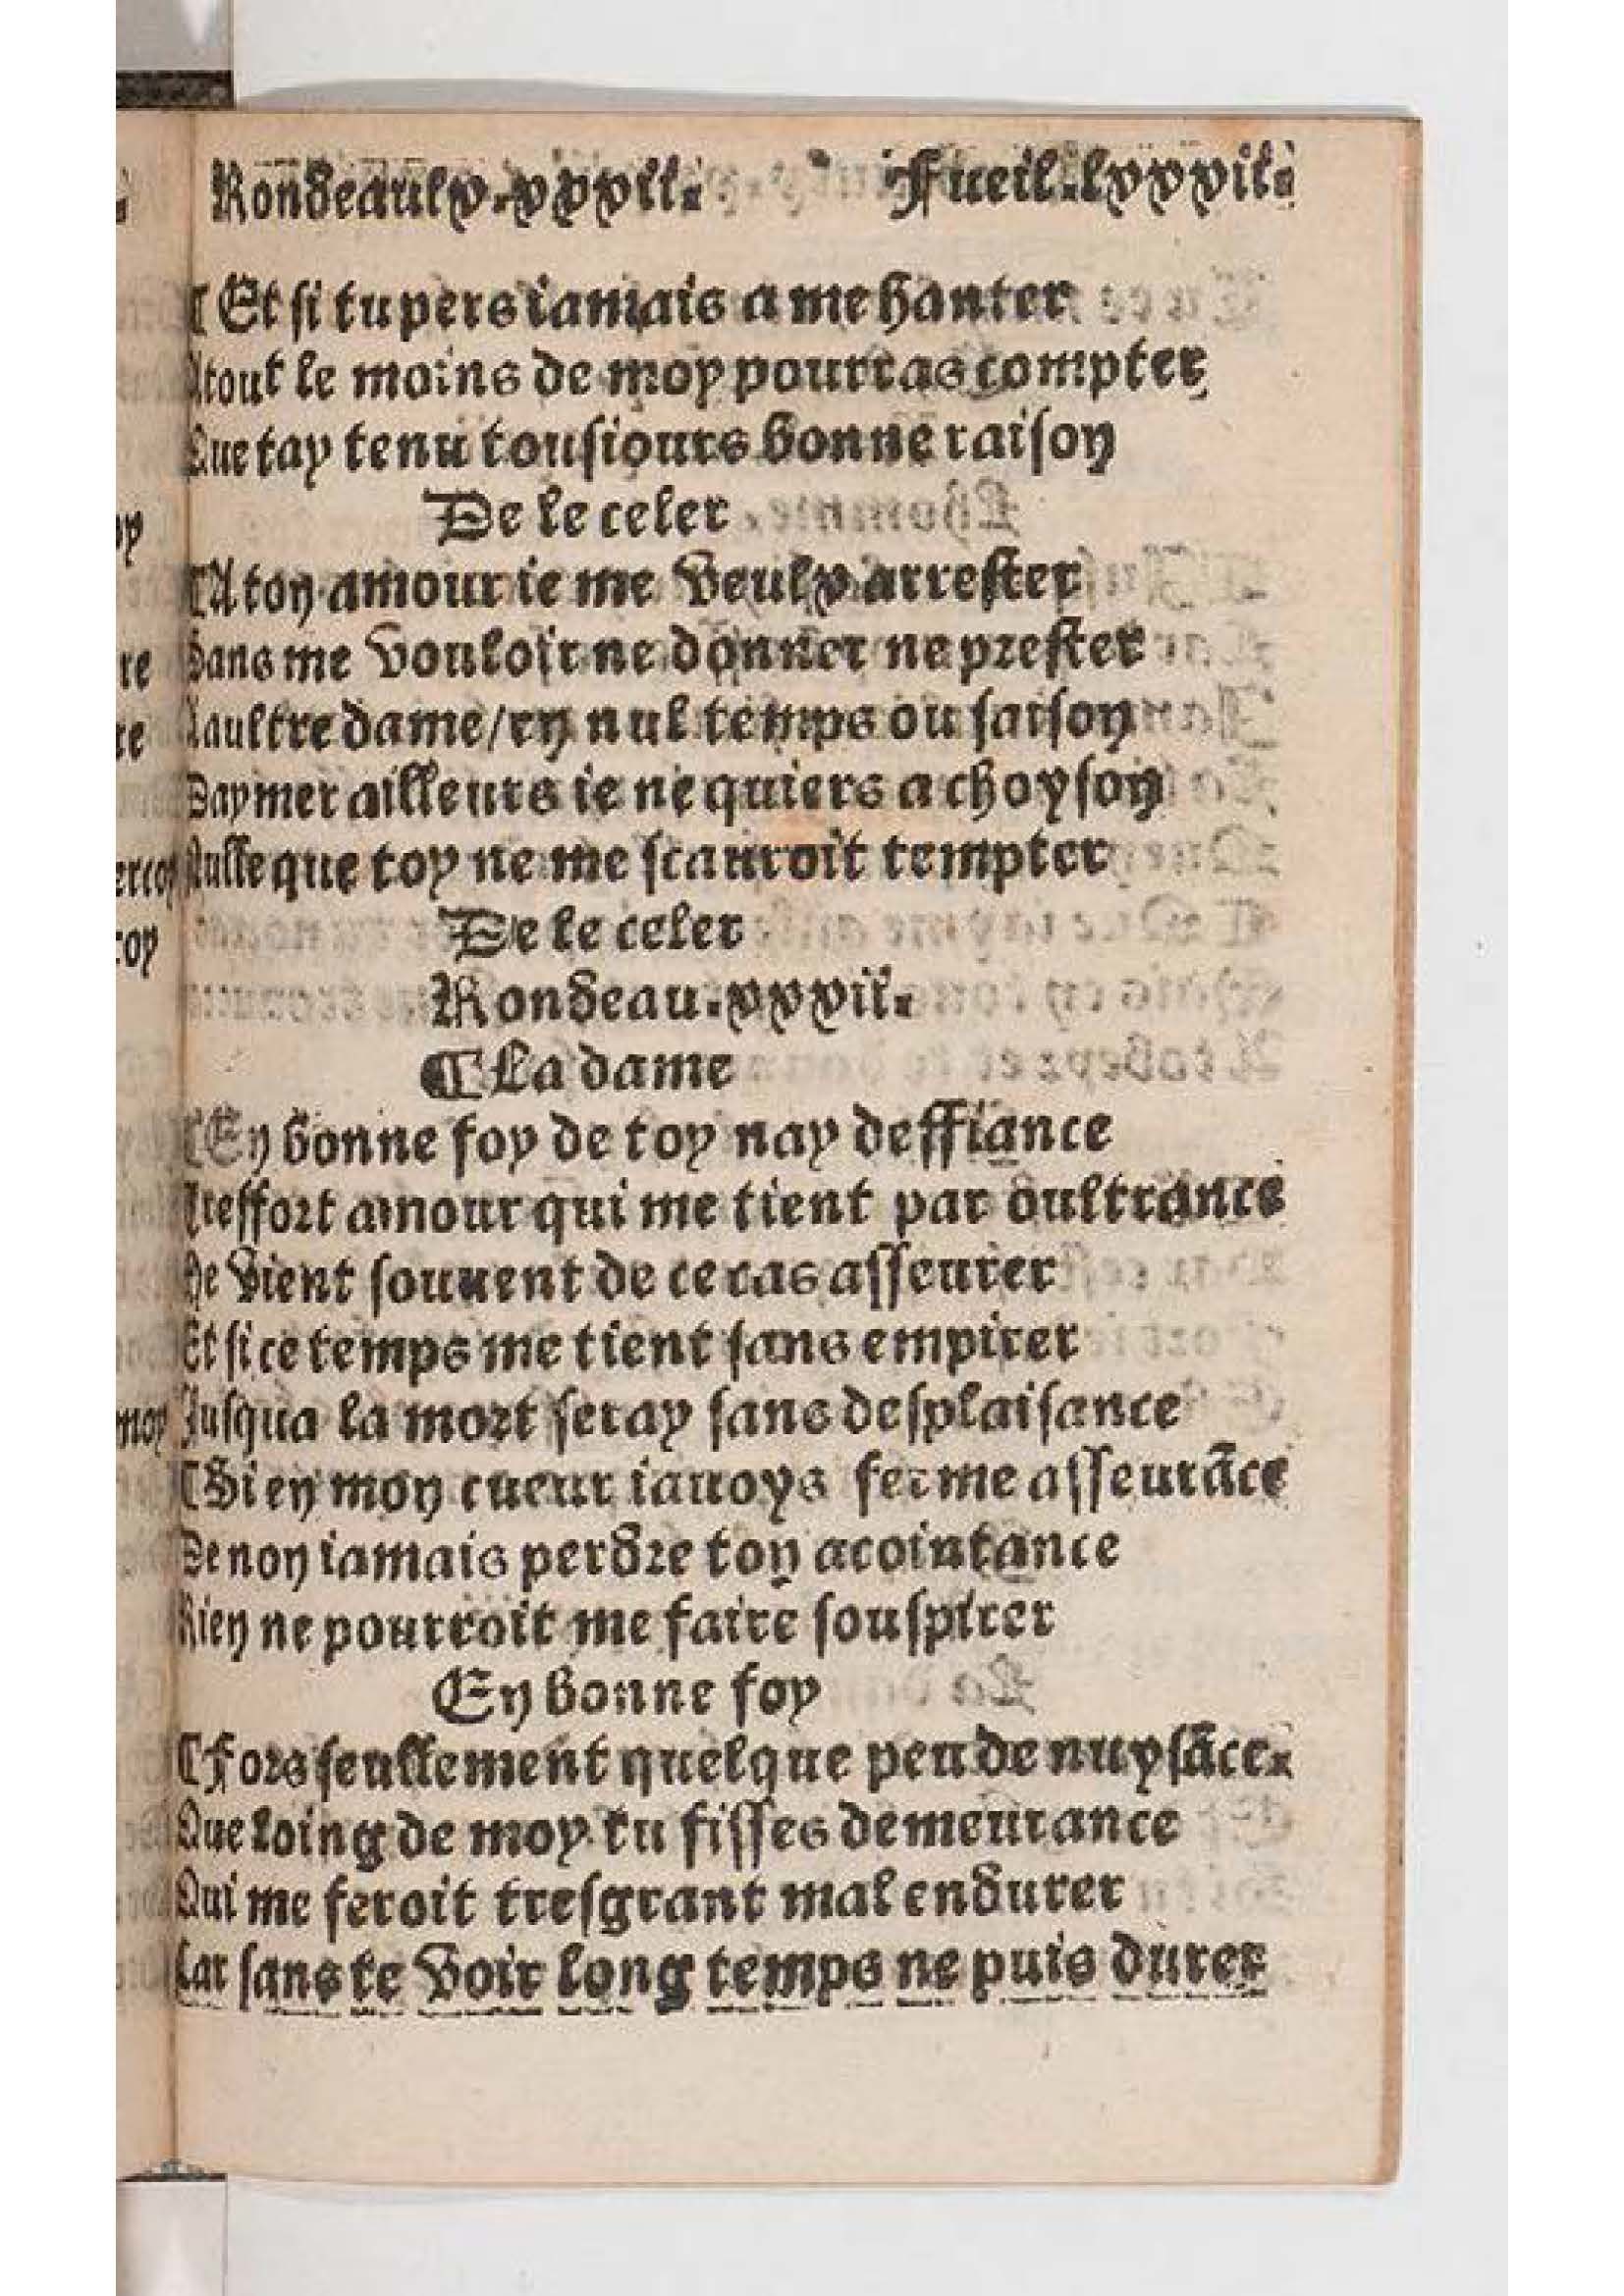 Rondeaulx.xxxii. Fueil.lxxxii.
¶Et si tu pers iamais a me hanter
Atout le moins de moy pourras compter
Que tay tenu tousiours bonne raison
De le celer
¶A ton amour ie me veulx arrester
Sans me vouloir ne donner ne prester
Aaultre dame/en nul temps ou saison
Daymer ailleurs ie ne quiers achoyson
Nulle que toy ne me scauroit tempter
De le celer
Rondeau.xxxii.
¶La dame
¶En bonne foy de toy nay deffiance
Treffort amour qui me tient par oultrance
Me vient souuent de ce cas asseurer
Et si ce temps me tient sans empirer
Jusqua la mort seray sans desplaisance
¶Si en mon cueur iauoys ferme asseurãce
De non iamais perdre ton acointance
Rien ne pourroit me faire souspirer
En bonne foy
¶Fors seullement quelque peu de nuysãce.
Que loing de moy tu fisses demeurance
Qui me feroit tresgrant mal endurer
Car sans te voir long temps ne puis durer